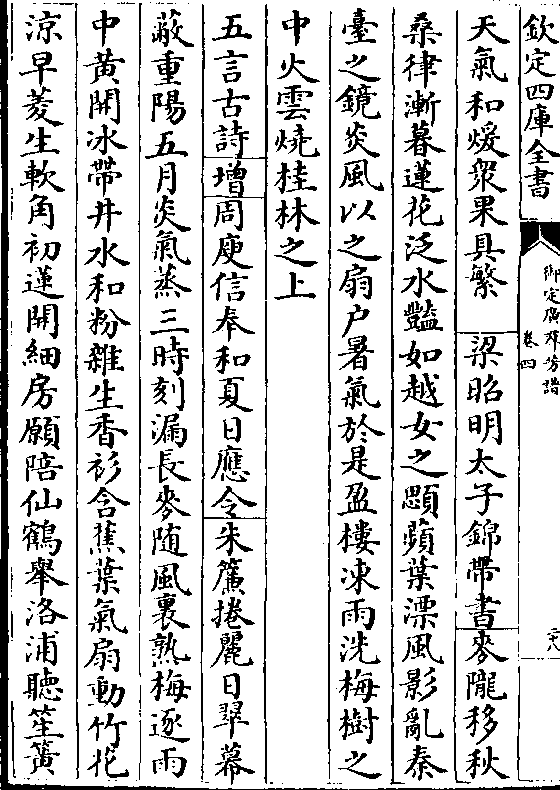 欽定四庫全書
御定廣羣芳譜
卷四
二十八
天氣和煖衆果具繁 梁昭明太子錦帶書麥隴移秋
桑律漸暮蓮花泛水豔如越女之顋蘋葉漂風影亂秦
臺之鏡炎風以之扇户暑氣於是盈樓凍雨洗梅樹之
中火雲燒桂林之上
五言古詩增周庾信奉和夏日應令朱簾捲麗日翠幕
蔽重陽五月炎氣蒸三時刻漏長麥随風裏熟梅逐雨
中黄開冰帶井水和粉雜生香衫含蕉葉氣扇動竹花
涼早菱生軟角初蓮開細房願陪仙鶴舉洛浦聽笙簧